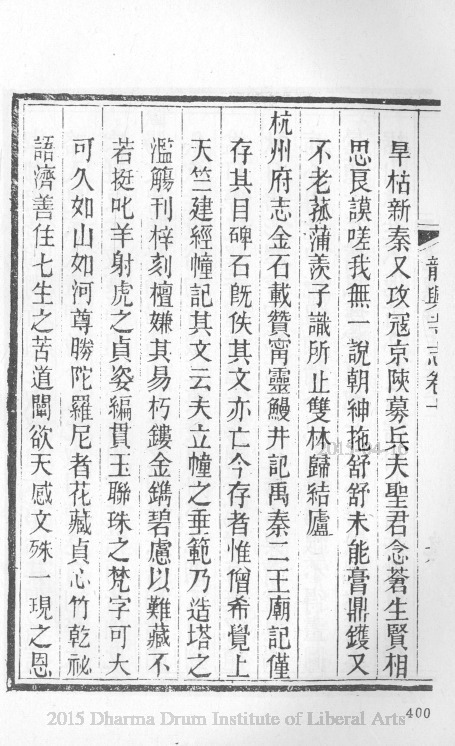 龍興寺志卷十
旱枯新秦又攻冦京陝募兵夫聖君念蒼生賢相
思良謨嗟我無一說朝紳拖舒舒未能膏鼎鑊又
不老菰蒲羨子識所止雙林歸結廬
杭州府志金石載贊甯靈鰻井記禹秦二王廟記僅
存其目碑石旣佚其文亦亡今存者惟僧希覺上
天竺建經幢記其文云夫立幢之垂範乃造塔之
濫觴刊梓刻檀嫌其易朽鏤金鐫碧慮以難藏不
若挺叱羊射虎之貞姿編貫玉聯珠之梵字可大
可久如山如河尊勝陀羅尼者花藏貞心竹乾祕
語濟善住七生之苦道闡欲天感文殊一現之恩
400
2015 Dharma Drum Institute of Liberal Arts